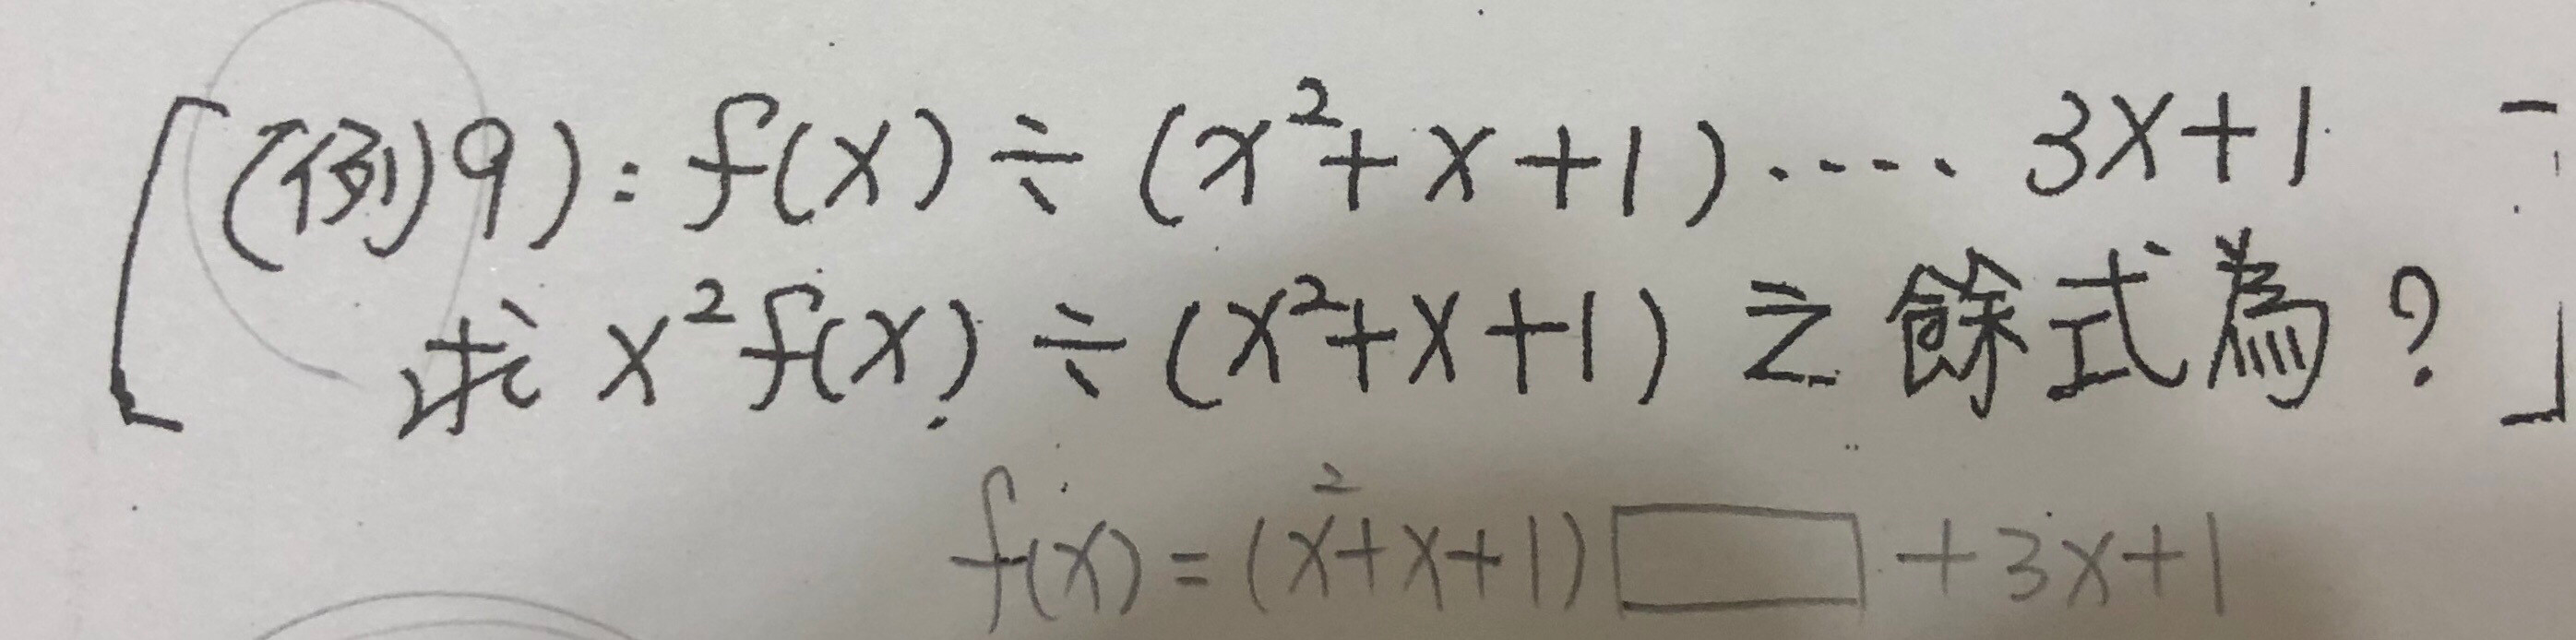 (例9): f(x) ÷ (x²+x+1) ···· 3x+1
求 x²f(x) ÷ (x²+x+1) 之餘式為?
f(x) = (x²+x+1) □ +3x+1